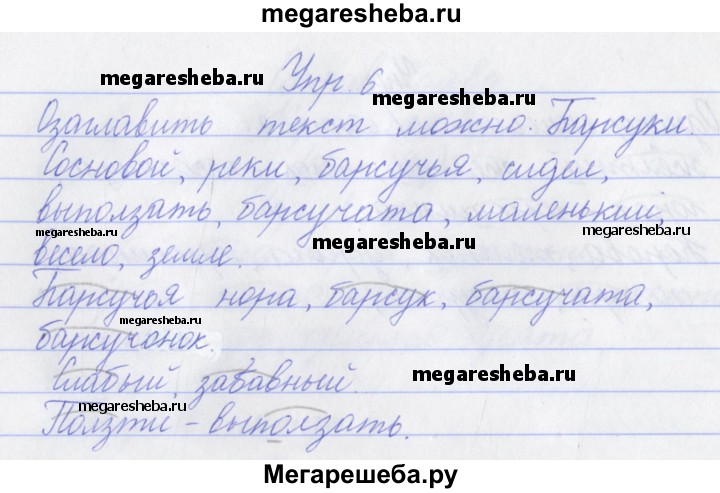 megaresheba.ru
Упр. 6
megaresheba.ru
megaresheba.ru
Озаглавить текст можно. Барсуки.
Сосновой, реки, барсучья, сидел,
megaresheba.ru
выползать, барсучата, маленький,
megaresheba.ru
megaresheba.ru
весело, земле.
Барсучья нора, барсук, барсучата,
megaresheba.ru
барсучонок.
Слабый, забавный.
megaresheba.ru
megaresheba.ru
Ползти – выползать.
Мегарешеба.ру